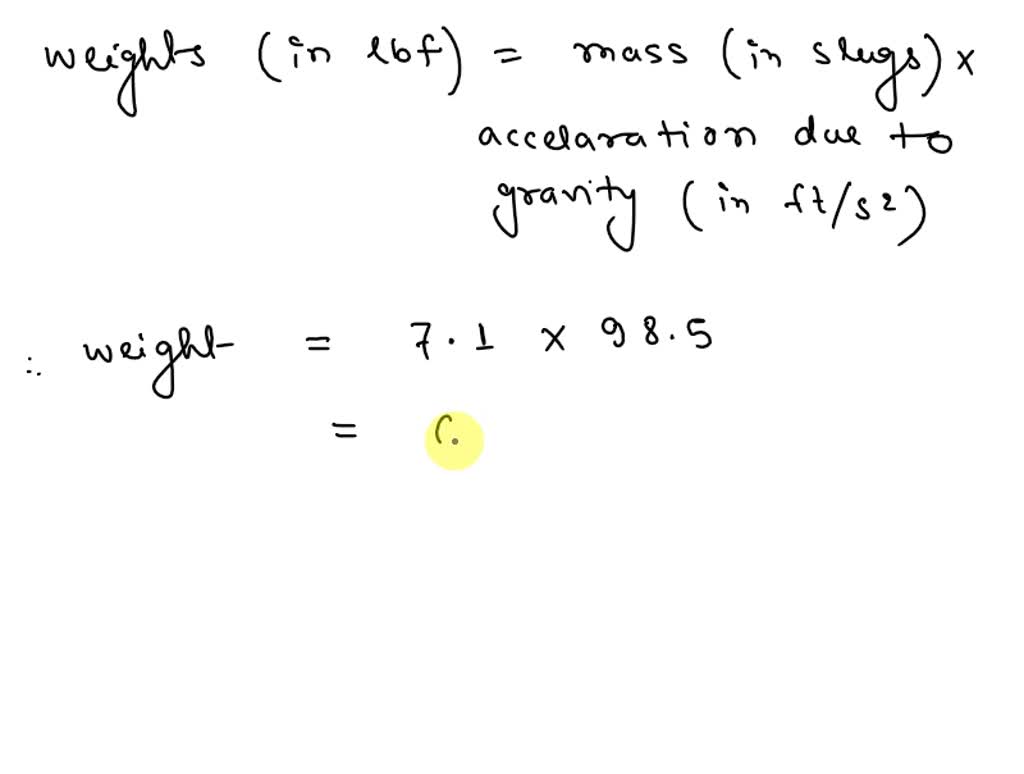 weights (in lbf) = mass (in slugs) ×
accelaration due to
gravity (in ft/s2)
∴ weight = 7.1 × 98.5
=